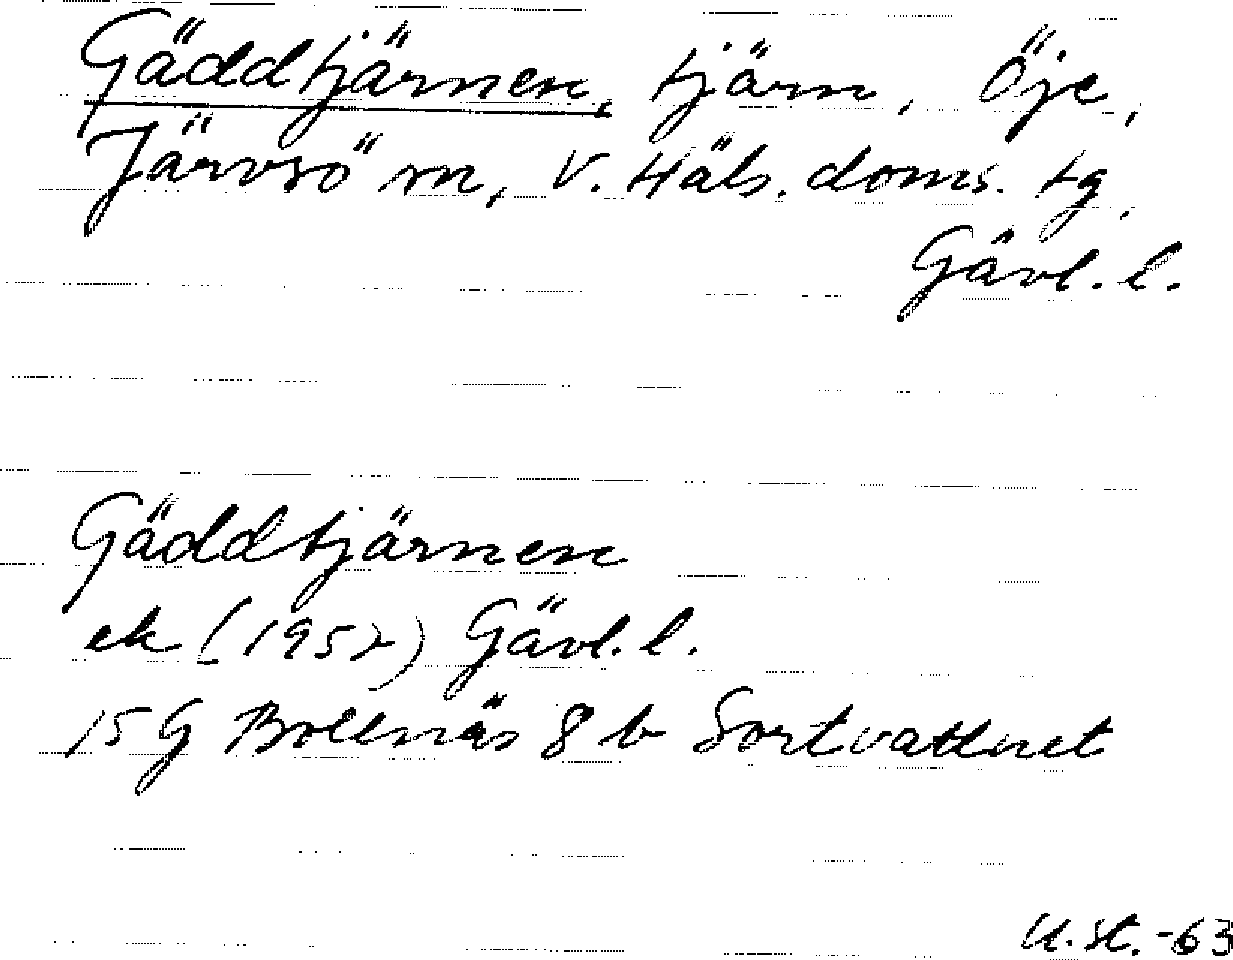 Gäddtjärnen, tjärn, Öje,
Järvsö sn, V. Häls. doms. tg,
Gävl. l.
Gäddtjärnen
ek (1952) Gävl. l.
15 G Bollnäs 8 b Sortvattnet
U. St. -63